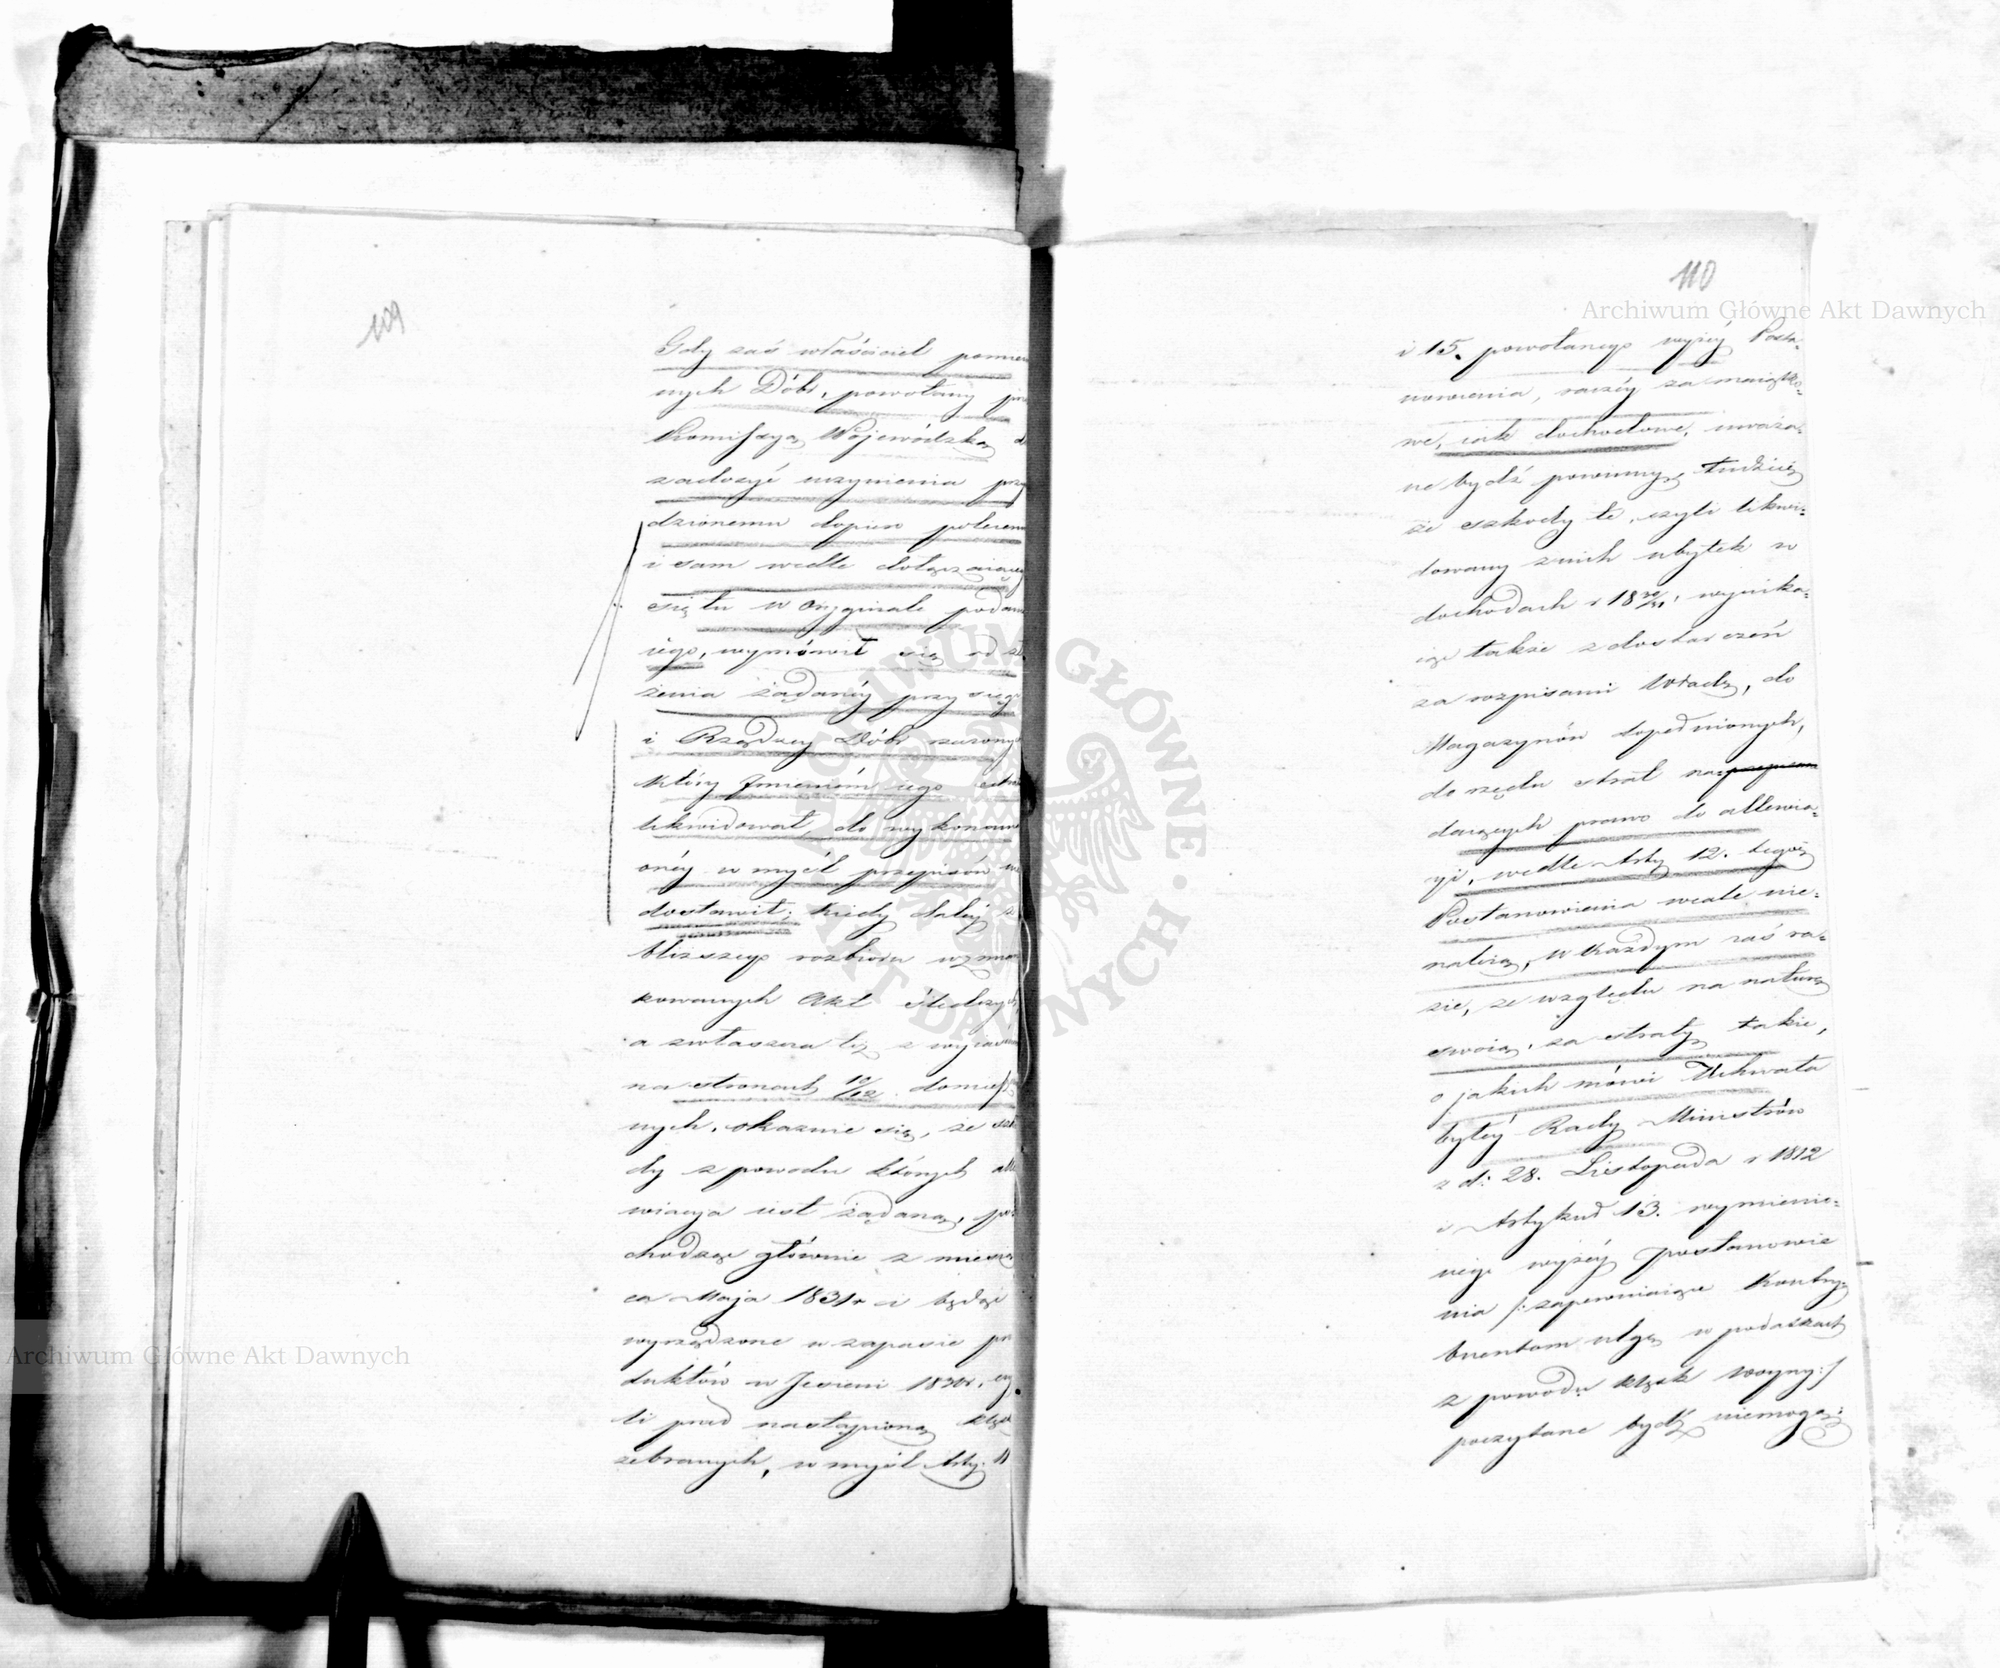 109
Gdy zaś właściciel pomien
nych Dóbr, powołany prz
Kommissyą Wojewódzką d
zadosyć uczynienia przy
dzionemu dopiero polecen
i sam wedle dołączaiący
się tu w oryginale podan
iego, wymówił się od zł
żenia żądanéy przysięg
i Rządzcy Dóbr rzeczony
który Imieniem iego strat
likwidował, do wykonan
onéy w myśl przepisów nie
dostawił; kiedy daléy z
bliższego rozbioru wzmian
kowanych Akt śledczych
a zwłaszcza też z wyiaśn
na stronach 10/12 domieszczo
nych, okazuie się, że szko
dy z powodu których alle
wiacya iest żądaną, po
chodzące głównie z miesią
ca Maja 1831r i będąc
wyrządzone w zapasie pro
duktów w Jesieni 1830r. czy
li przed nastąpioną klęską
zebranych, w myśl Arty: 11
110
i 15. powołanego wyżéy Posta-
nowienia, raczéy za maiątko-
we, iak dochodowe, uważa-
ne bydź powinny, tudzież
że szkody te, czyli likwi-
dowany z nich ubytek w
dochodach r 18 30/31, wynika-
iąc także z dostarczeń
za rozpisami Władz, do
Magazynów dopełnionych,
do rzędu strat
daiących prawo do allewia-
cyi, wedle Arty 12. tegoż
Postanowienia wcale nie-
należą, w każdym zaś ra-
zie, ze względu na naturę
swoią, za straty takie,
o jakich mówi Uchwała
byłéy Rady Ministrów
z d: 28. Listopada r 1812
i Artykuł 13. wymienio-
nego wyżéy Postanowie
nia /: zapewniaiące Kontry-
buentom ulgę w podatkach
z powodu klęsk woyny :/
poczytane bydź niemogą;
Archiwum Główne Akt Dawnych
Archiwum Główne Akt Dawnych
ARCHIWUM GŁÓWNE • AKT DAWNYCH •